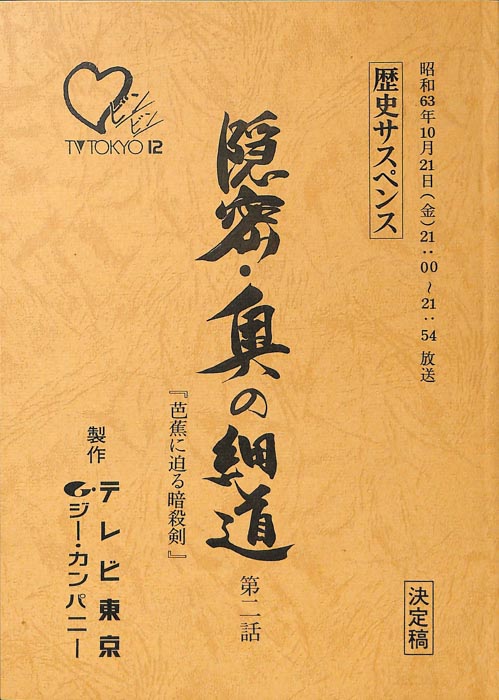 昭和63年10月21日(金)21:00~21:54 放送
歴史サスペンス
ビンビン
TV TOKYO 12
隠密・奥の細道
第二話
『芭蕉に迫る暗殺剣』
製作 テレビ東京
G・ジー・カンパニー
決定稿